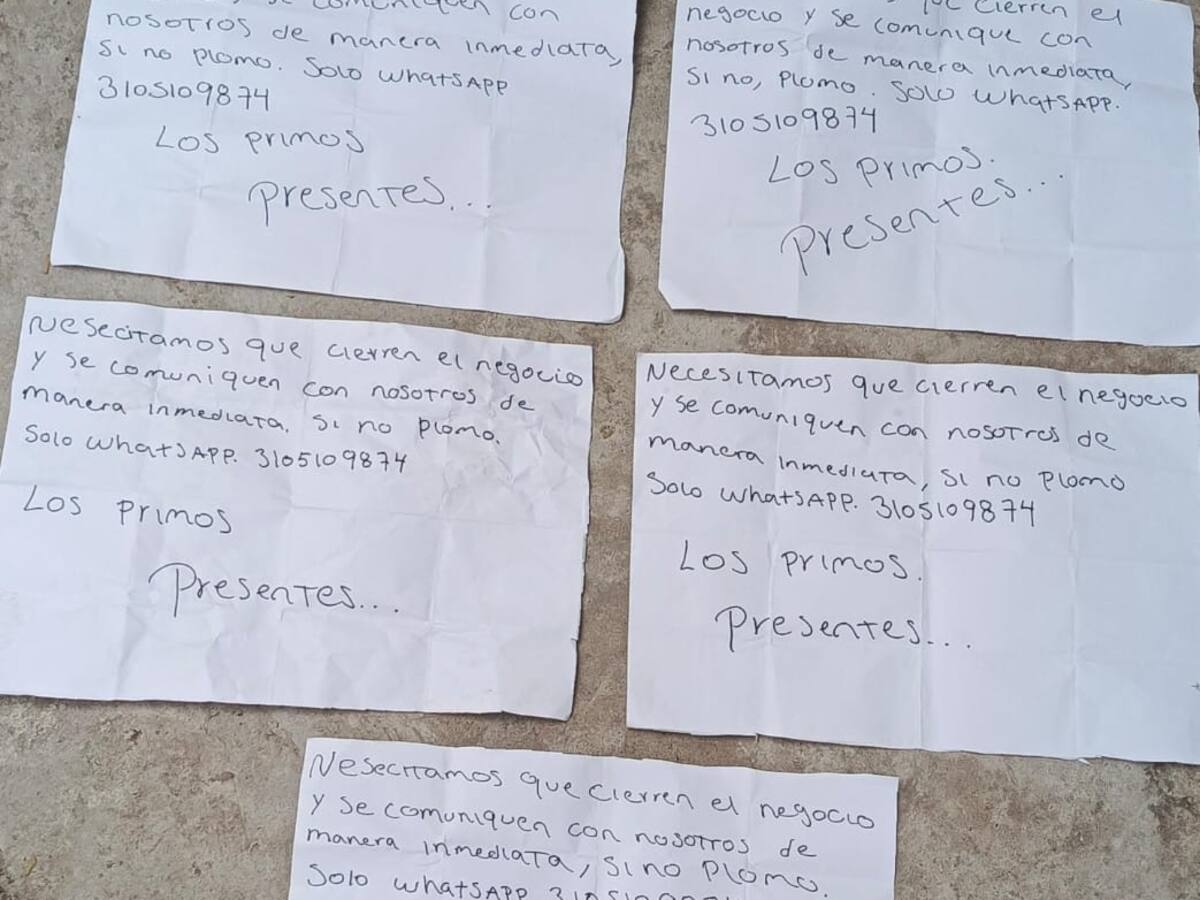 se comuniquen con
nosotros de manera inmediata,
si no plomo. Solo WhatsAPP
3105109874
Los primos
presentes...
cierren el
negocio y se comunique con
nosotros de manera inmediata,
si no, plomo. Solo WhatsAPP.
3105109874
Los primos.
presentes...
Nesecitamos que cierren el negocio
y se comuniquen con nosotros de
manera inmediata. si no plomo.
Solo WhatsAPP. 3105109874
Los primos
Presentes...
Necesitamos que cierren el negocio
y se comuniquen con nosotros de
manera inmediata, si no plomo
Solo WhatsAPP. 3105109874
Los primos.
Presentes...
Nesecitamos que cierren el negocio
y se comuniquen con nosotros de
manera inmediata, si no plomo.
Solo WhatsAPP